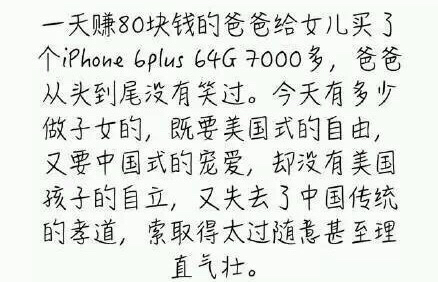 一天赚80块钱的爸爸给女儿买了
个iPhone 6plus 64G 7000多，爸爸
从头到尾没有笑过。今天有多少
做子女的，既要美国式的自由，
又要中国式的宠爱，却没有美国
孩子的自立，又失去了中国传统
的孝道，索取得太过随意甚至理
直气壮。